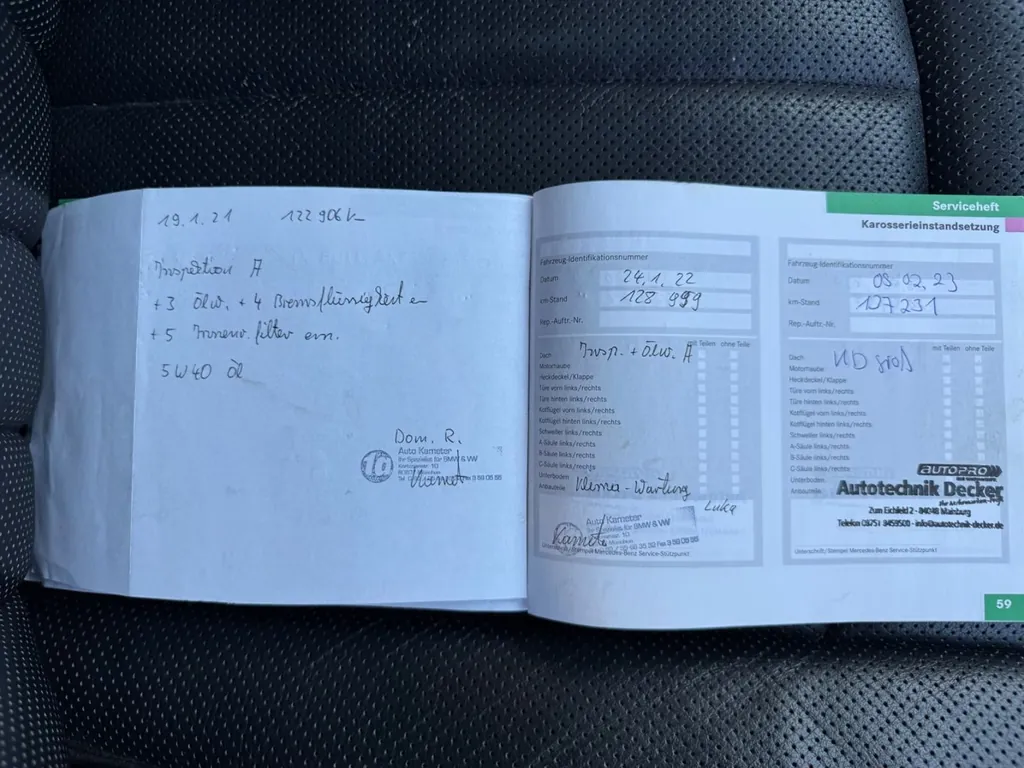 19.1.21 122 906 k
Inspektion A
+3 Ölw. +4 Bremsflüssigkeit en
+5 Innenr. filter ern.
5W40 Öl
Dom. R.
10
Auto Kameter
Ihr Spezialist für BMW & VW
Serviceheft
Karosserieinstandsetzung
Fahrzeug-Identifikationsnummer
Datum 24.1.22
km-Stand 128 999
Rep.-Auftr.-Nr.
mit Teilen ohne Teile
Dach Insp. + Ölw. A
Motorhaube
Heckdeckel/Klappe
Türe vorn links/rechts
Türe hinten links/rechts
Kotflügel vorn links/rechts
Kotflügel hinten links/rechts
Schweller links/rechts
A-Säule links/rechts
B-Säule links/rechts
C-Säule links/rechts
Unterboden
Anbauteile Kleine-Wartung
Luka
Auto Kameter
Ihr Spezialist für BMW & VW
Unterschrift/Stempel Mercedes-Benz Service-Stützpunkt
Fahrzeug-Identifikationsnummer
Datum 08.02.23
km-Stand 137231
Rep.-Auftr.-Nr.
mit Teilen ohne Teile
Dach KD groß
Motorhaube
Heckdeckel/Klappe
Türe vorn links/rechts
Türe hinten links/rechts
Kotflügel vorn links/rechts
Kotflügel hinten links/rechts
Schweller links/rechts
A-Säule links/rechts
B-Säule links/rechts
C-Säule links/rechts
Unterboden
Anbauteile
AUTOPRO
Autotechnik Decker
Zum Eichfeld 2 - 84048 Mainburg
Telefon 08751 8459500 - info@autotechnik-decker.de
Unterschrift/Stempel Mercedes-Benz Service-Stützpunkt
59